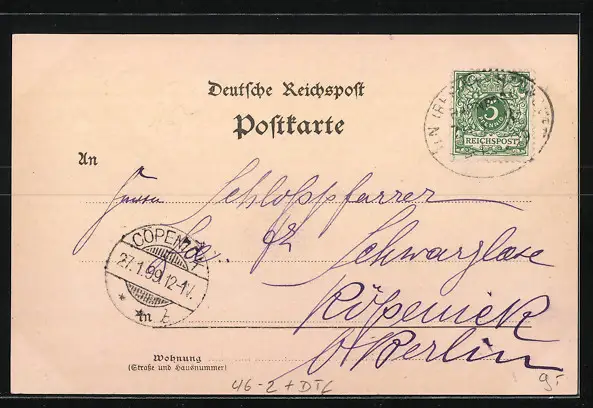 Deutsche Reichspost
Postkarte
5
PFENNIG
REICHSPOST
An
Herrn Schlosspfarrer
Schwarzlose
CÖPENICK
27.1.99.12-1N.
Köpenick
b/Berlin
Wohnung
(Straße und Hausnummer)
46-2+DTC
9.-